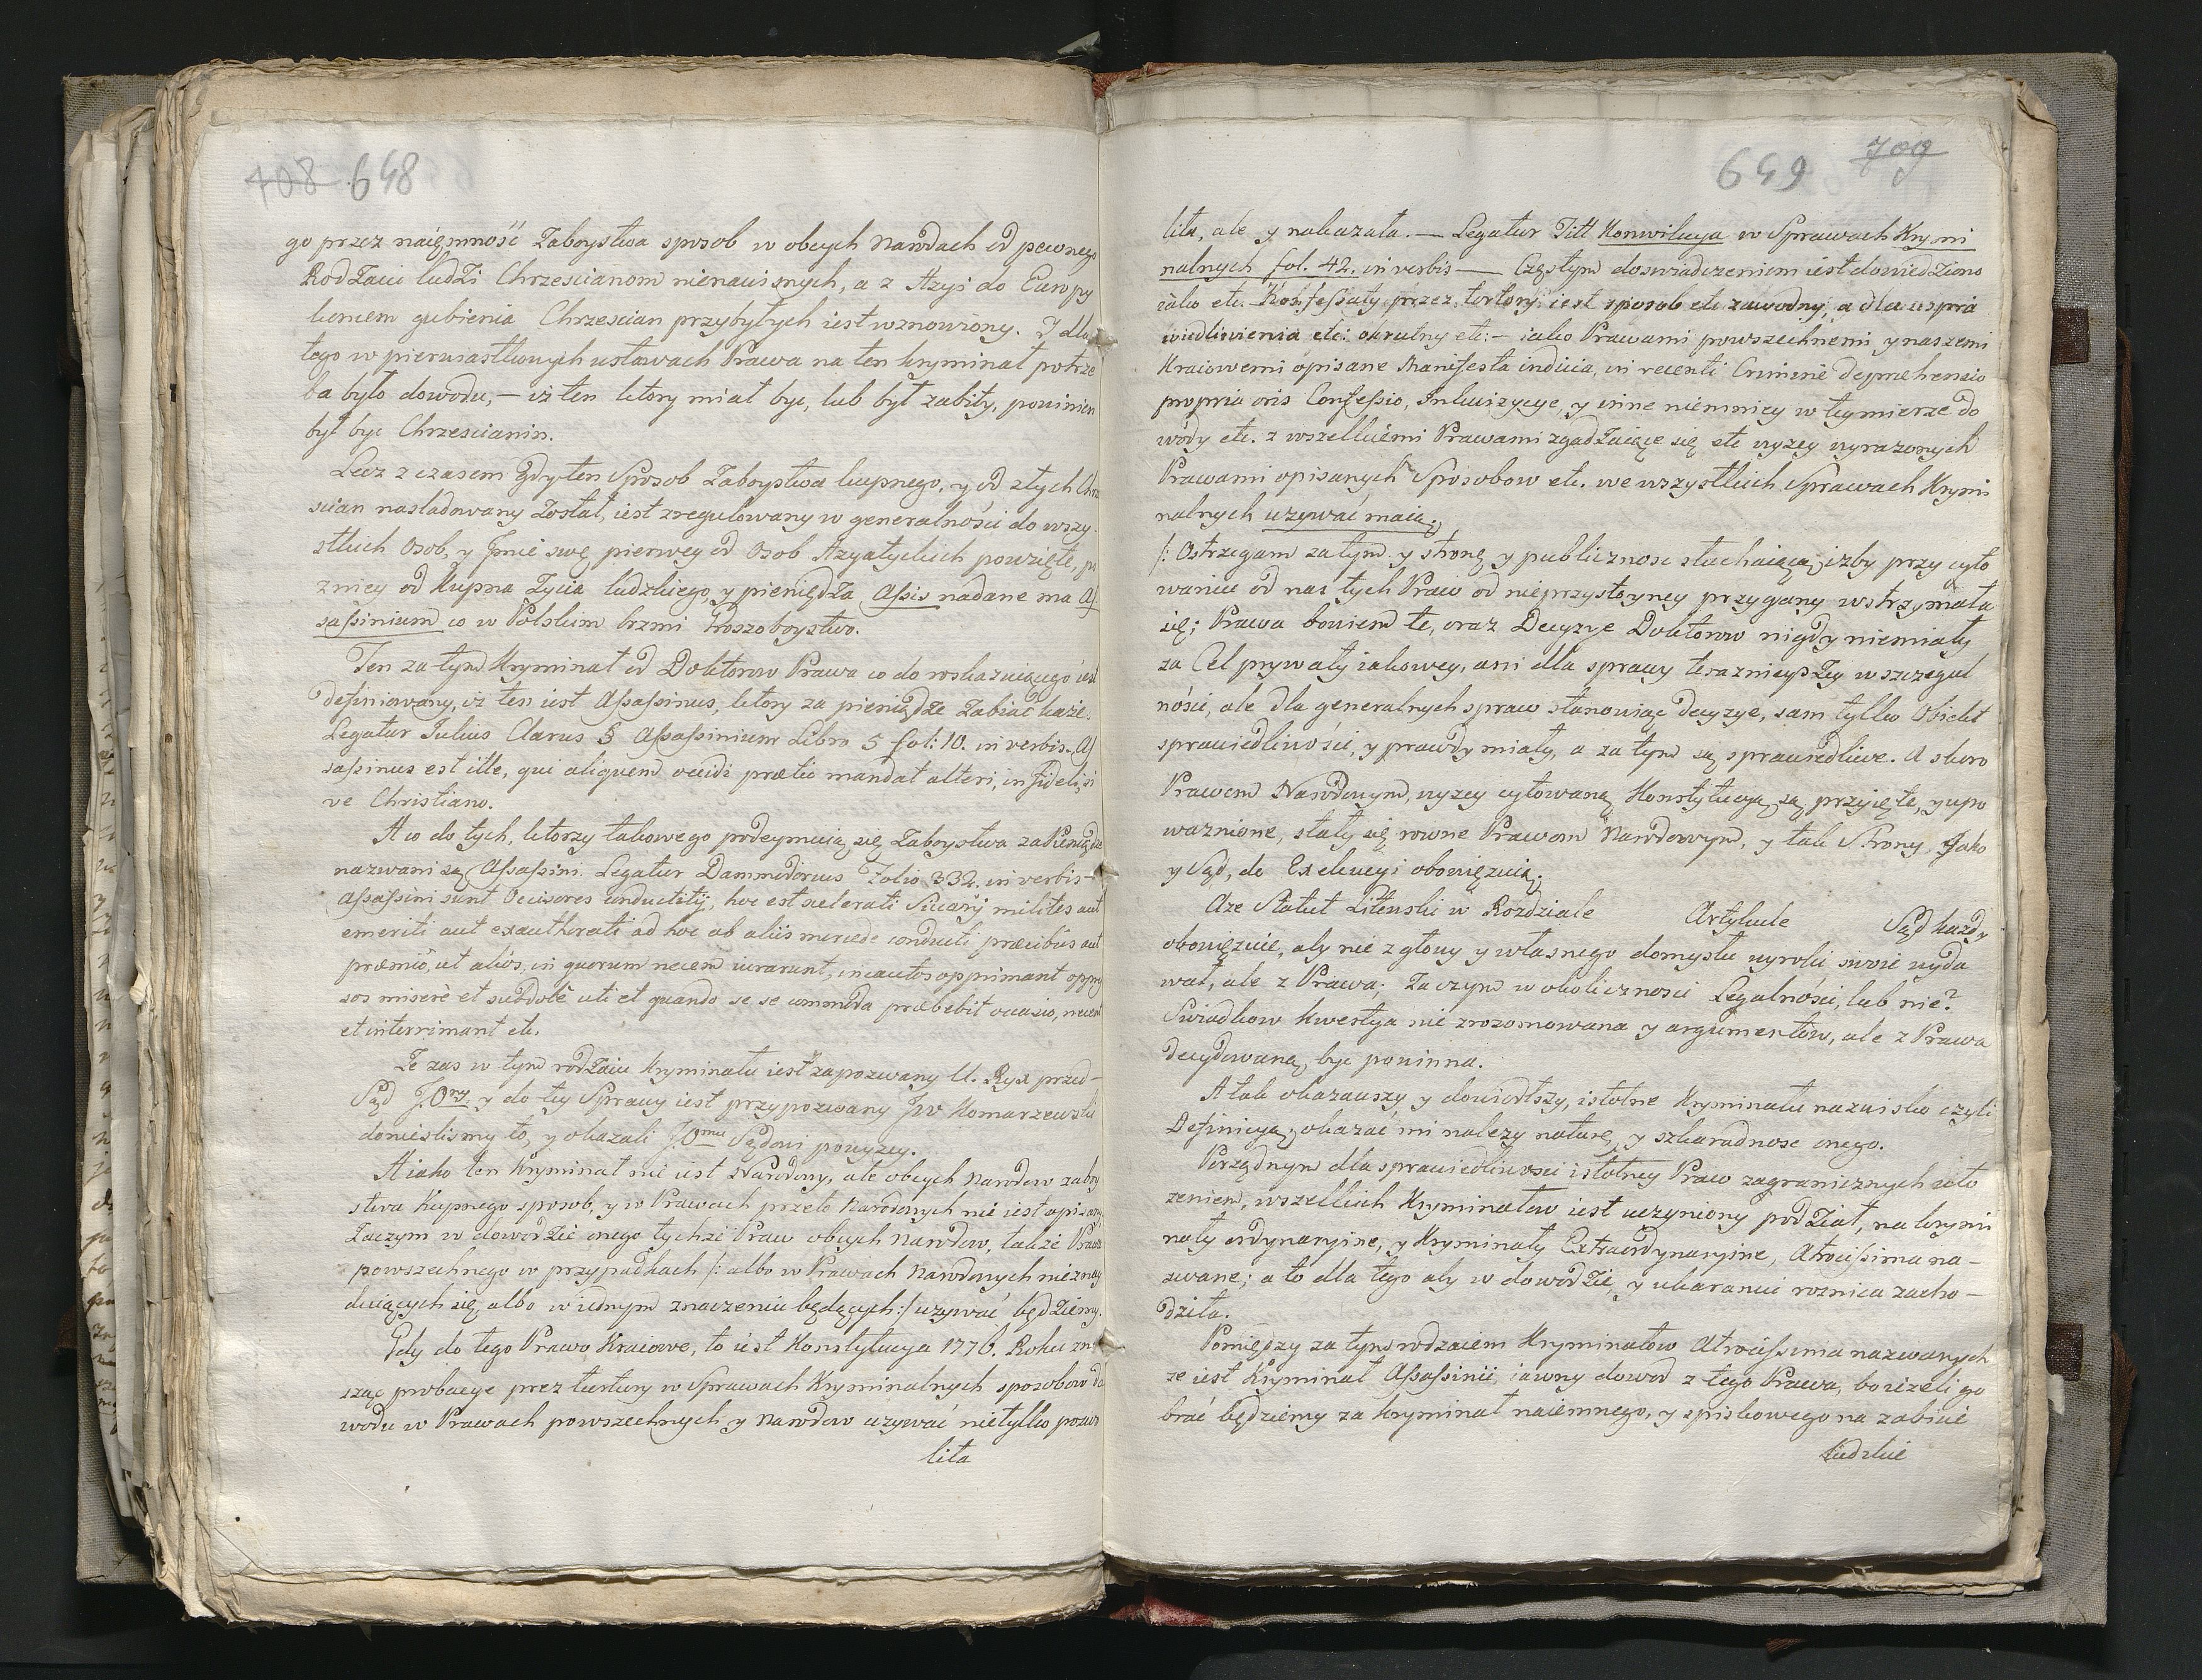 408 648
go przez naięmność Zaboystwa sposob w obcych Narodach od pewnego
Rodzaiu ludzi Chrzescianom nienawisnych, a z Azyi do Europy
koncem gubienia Chrzescian przybyłych iest wznowiony. I dla
tego w pierwiastkowych ustawach Prawa na ten kryminał potrze
ba było dowodu, — iż ten ktory miał byc, lub był zabity, powinien
był byc Chrzescianin.
Lecz z czasem gdy ten Sposob Zaboystwa kupnego, y od złych Chrze
scian nasladowany został, iest zregulowany w generalności do wszy
stkich Osob, y Jmie swę pierwey od Osob Azyatyckich powzięte, po
zniey od Kupna Zycia ludzkiego, y pieniędza Assis nadane ma As
sassinium co w Polskim brzmi Groszoboystwo.
Ten za tym Kryminał od Doktorow Prawa co do roskazuiącego iest
definiowany, iż ten iest Assassinus, ktory za pieniądze Zabiać każe.
Legatur Julius Clarus § Assassinium Libro 5 fol: 10. in verbis. As
sassinus est ille, qui aliquem occidi prætio mandat alteri, infideli, si
ve Christiano.
A co do tych, ktorzy takowego podeymuią się Zaboystwa za Pieniądze
nazwani są Assassini. Legatur Dammidorius Folio 332. in verbis —
Assassini sunt Occisores conductitij, hoc est scelerati Sicarij milites aut
emeriti aut exauthorati ad hoc ab aliis mercede conducti præcibus aut
præmio, ut alios, in quorum necem iurarunt, incautos opprimant oppres
sos miserè et subdolè uti et quando se se commoda præbebit occasio, necent
et interrimant etc.
Ze zas w tym rodzaiu Kryminału iest zapozwany U. Ryx przed —
Sąd J.Ony. y do tey Sprawy iest przypozwany Jw Komarzewski
donieslismy to, y okazali J.Omu Sądowi powyzey.
A iako ten Kryminał nie iest Narodowy, ale obcych Narodow zaboy
stwa Kupnego sposob, y w Prawach przeto Narodowych nie iest opisany,
Zaczym w dowodzie onego tychże Praw obcych Narodow, także Prawa
powszechnego w przypadkach /: albo w Prawach Narodowych nie znay
duiących się, albo w iednym znaczeniu będących :/ uzywać będziemy.
Gdy do tego Prawo Kraiowe, to iest Konstytucya 1776. Roku zno
sząc probacye prez tortury w Sprawach Kryminalnych sposobow do
wodu w Prawach powszechnych y Narodow uzywać nietylko pozwo
liła
649 709
liła, ale y nakazała. — Legatur Titt Konwikcya w Sprawach Krymi
nalnych fol. 42. in verbis — Częstym doswiadczeniem iest dowiedziono
iako etc. Konfessaty przez tortory iest sposob etc zawodny, a dla uspra
wiedliwienia etc: okrutny etc: — iako Prawami powszechnemi y naszemi
Kraiowemi opisane Manifesta indicia, in recenti Crimine deprehensio
propria oris Confessio, Inkwizycye, y inne niemniey w teymierze do
wody etc. z wszelkiemi Prawami zgadzaiące się etc wyzey wyrazonych
Prawami opisanych Sposobow etc. we wszystkich Sprawach Krymi
nalnych uzywać maią.
/: Ostrzegam zatym y stronę y publicznosc słuchaiącą, izby przy cyto
waniu od nas tych Praw od nieprzystoyney przygany wstrzymała
się; Prawa bowiem te, oraz Decyzye Doktorow nigdy niemiały
za Cel prywaty iakowey, ani dla sprawy teraznieyszey w szczegul
nósci, ale dla generalnych spraw stanowiąc decyzye, sam tylko Obiekt
sprawiedliwości, y prawdy miały, a za tym są sprawiedliwe. A skoro
Prawem Narodowym, wyzey cytowaną Konstytucyą są przyięte, y upo
waznione, stały się rowne Prawom Narodowym, y tak Strony, Jako
y Sąd, do Exekucyi obowięzuią.
Aze Statut Litewski w Rozdziale Artykule Sąd kazdy
obowięzuie, aby nie z głowy y własnego domysłu wyroki swoie wyda
wał, ale z Prawa; Zaczym w okoliczności Legalności, lub nie?
Swiadkow kwestya nie z rozomowana y argumentów, ale z Prawa
decydowaną byc powinna.
A tak okazawszy y dowiodłszy, istotne Kryminału nazwisko czyli
Definicyą, okazać mi nalezy naturę, y szkaradnosc onego.
Porządnym dla sprawiedliwosci istotney Praw zagranicznych uło
zeniem, wszelkich Kryminałow iest uczyniony podział, na krymi
nały ordynaryine, y Kryminały Extraordynaryine, Atrocissima na —
zwane; a to dla tego aby w dowodzie, y ukaraniu roznica zacho —
dziła.
Pomiędzy za tym rodzaiem Kryminałow Atrocissima nazwanych
ze iest Kryminał Assassinii, iawny dowod z tego Prawa, bo ieżeli go
brać będziemy za kryminał naiemnego, y spiskowego na zabicie
Ludzkie